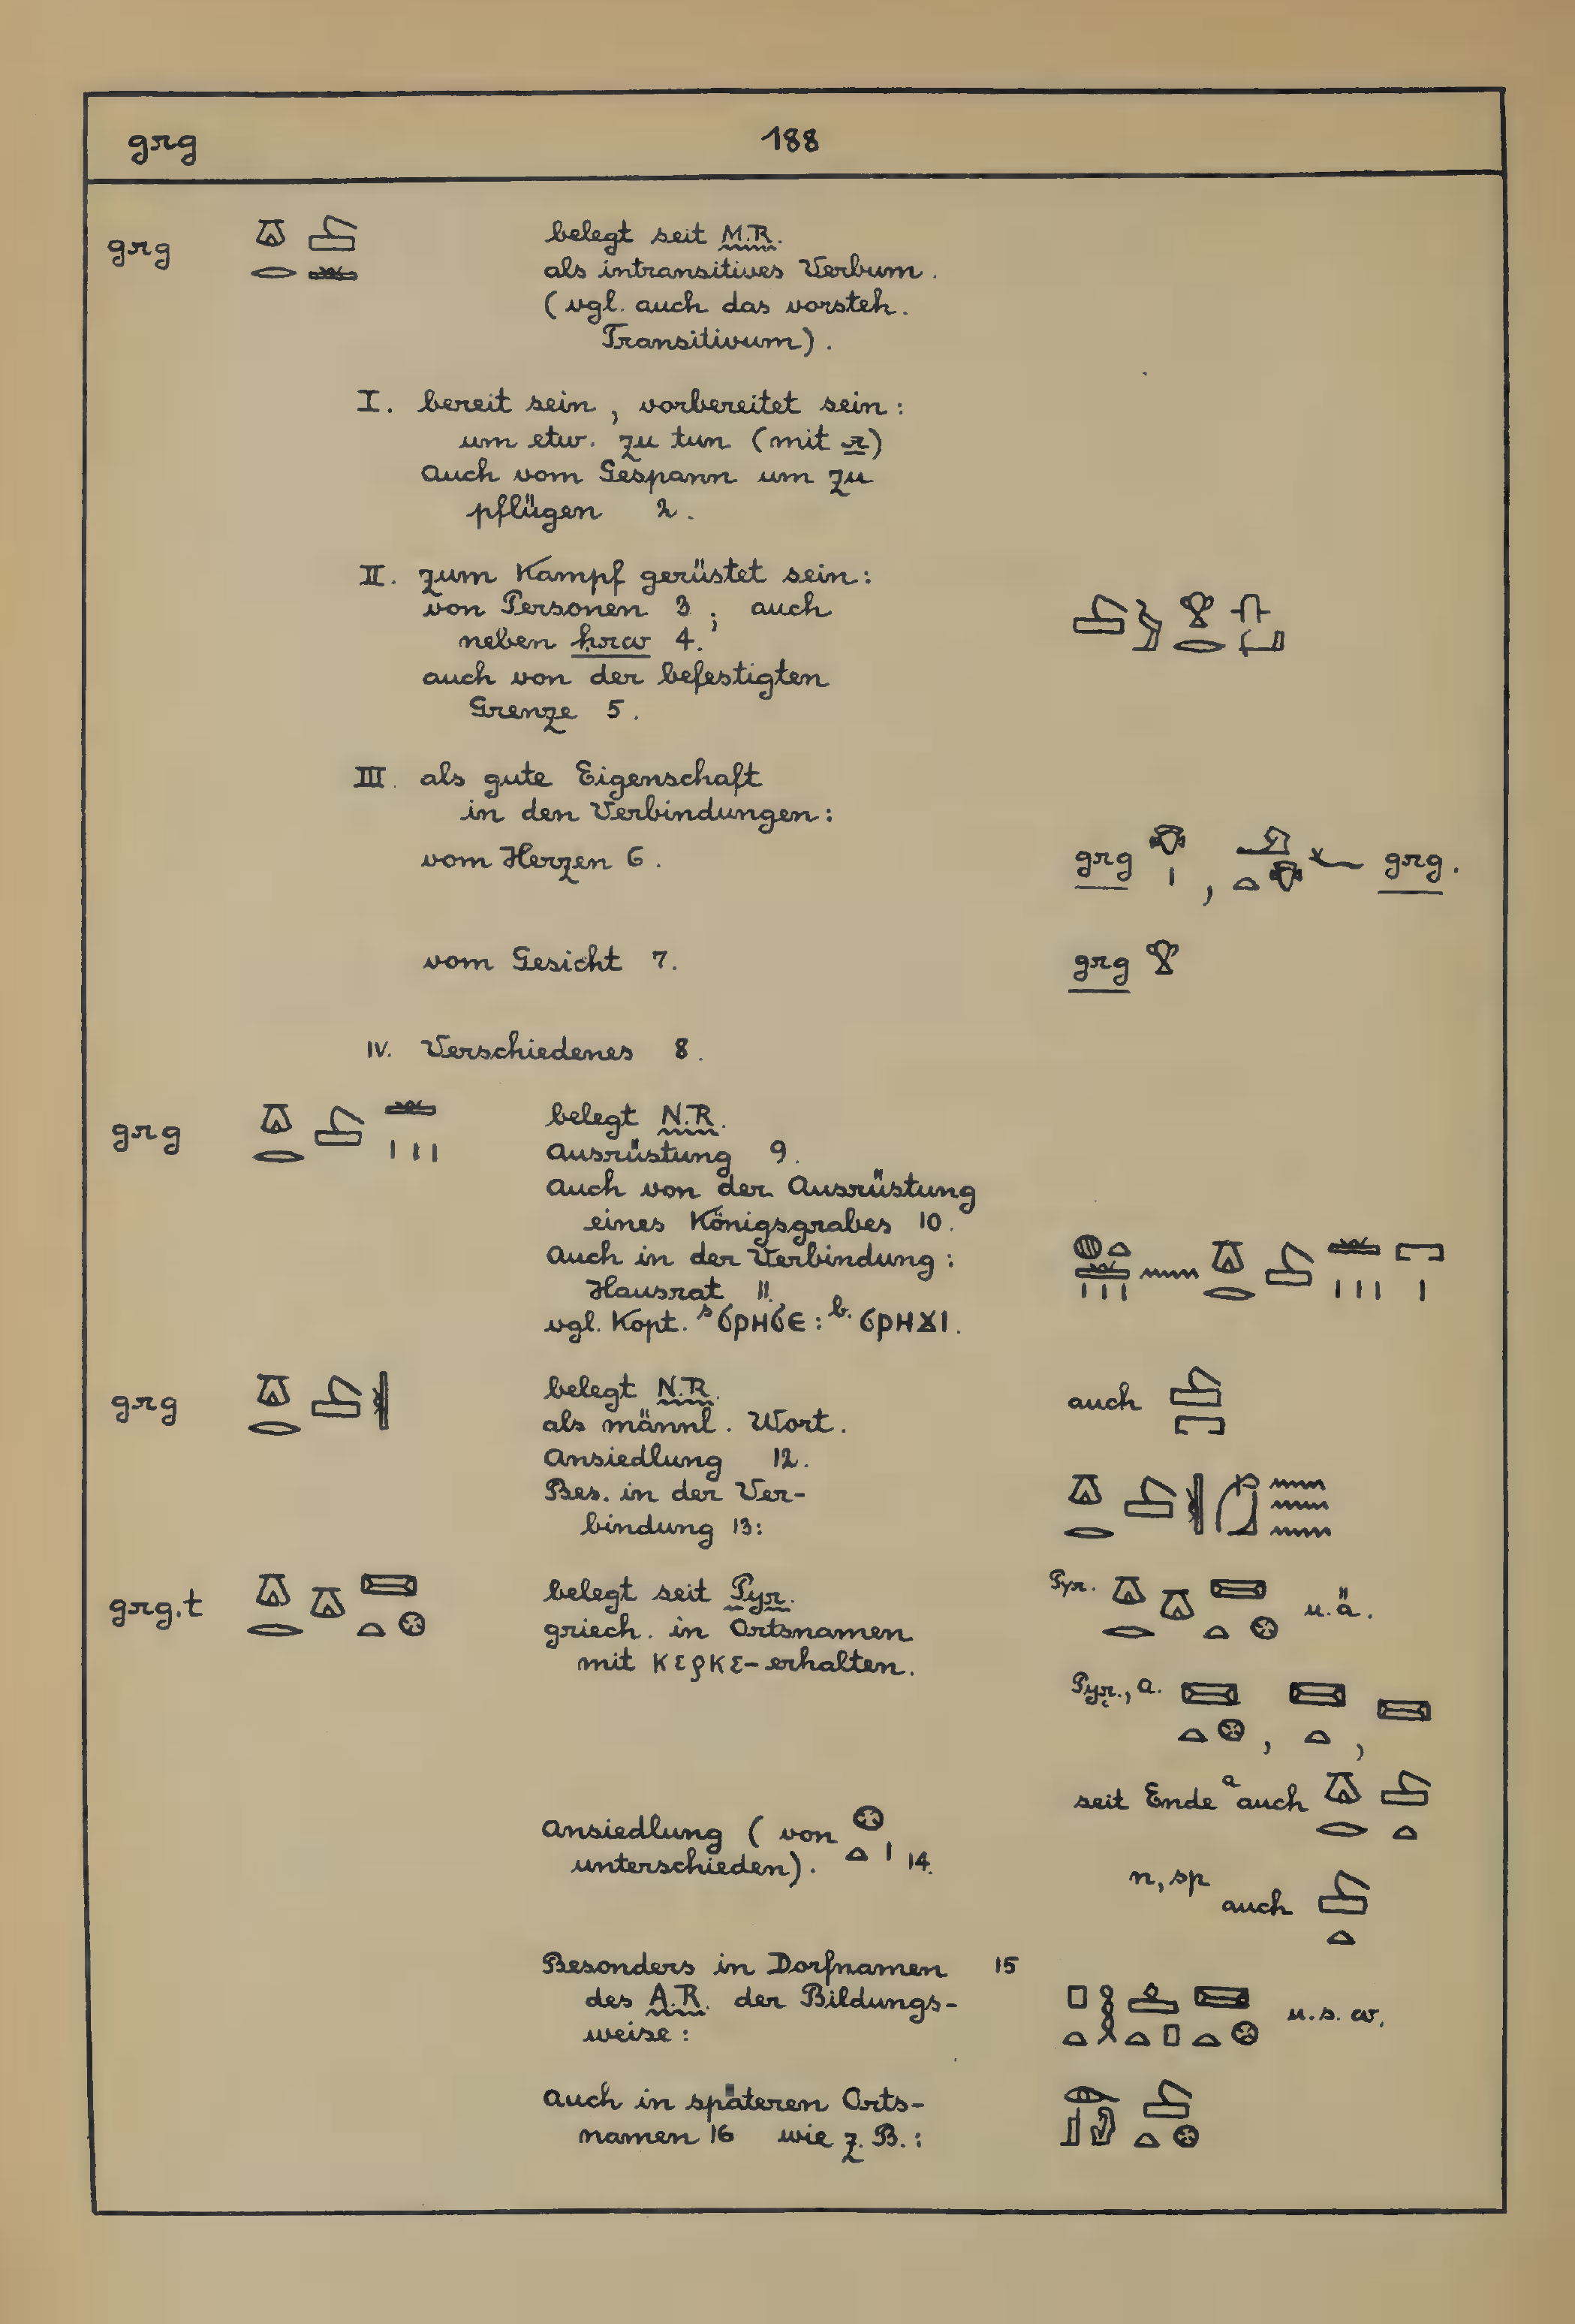 grg 188
grg belegt seit M.R.
als intransitives Verbum.
(vgl. auch das vorsteh.
Transitivum).
I. bereit sein, vorbereitet sein:
um etw. zu tun (mit r)
auch vom Gespann um zu
pflügen 2.
II. zum Kampf gerüstet sein:
von Personen 3; auch
neben hrw 4.
auch von der befestigten
Grenze 5.
III. als gute Eigenschaft
in den Verbindungen:
vom Herzen 6. grg , grg.
vom Gesicht 7. grg
IV. Verschiedenes 8.
grg belegt N.R.
Ausrüstung 9.
auch von der Ausrüstung
eines Königsgrabes 10.
auch in der Verbindung:
Hausrat 11.
vgl. Kopt. s ϭⲣⲏϭⲉ: b. ϭⲣⲏϫⲓ.
grg belegt N.R. auch
als männl. Wort.
Ansiedlung 12.
Bes. in der Ver-
bindung 13:
grg.t belegt seit Pyr. Pyr. u.ä.
griech. in Ortsnamen
mit κερκε- erhalten.
Pyr., a. , ,
seit Ende a auch
Ansiedlung (von
unterschieden). 14.
n, sp auch
Besonders in Dorfnamen 15
des A.R. der Bildungs- u.s.w.
weise:
auch in späteren Orts-
namen 16 wie z.B.: